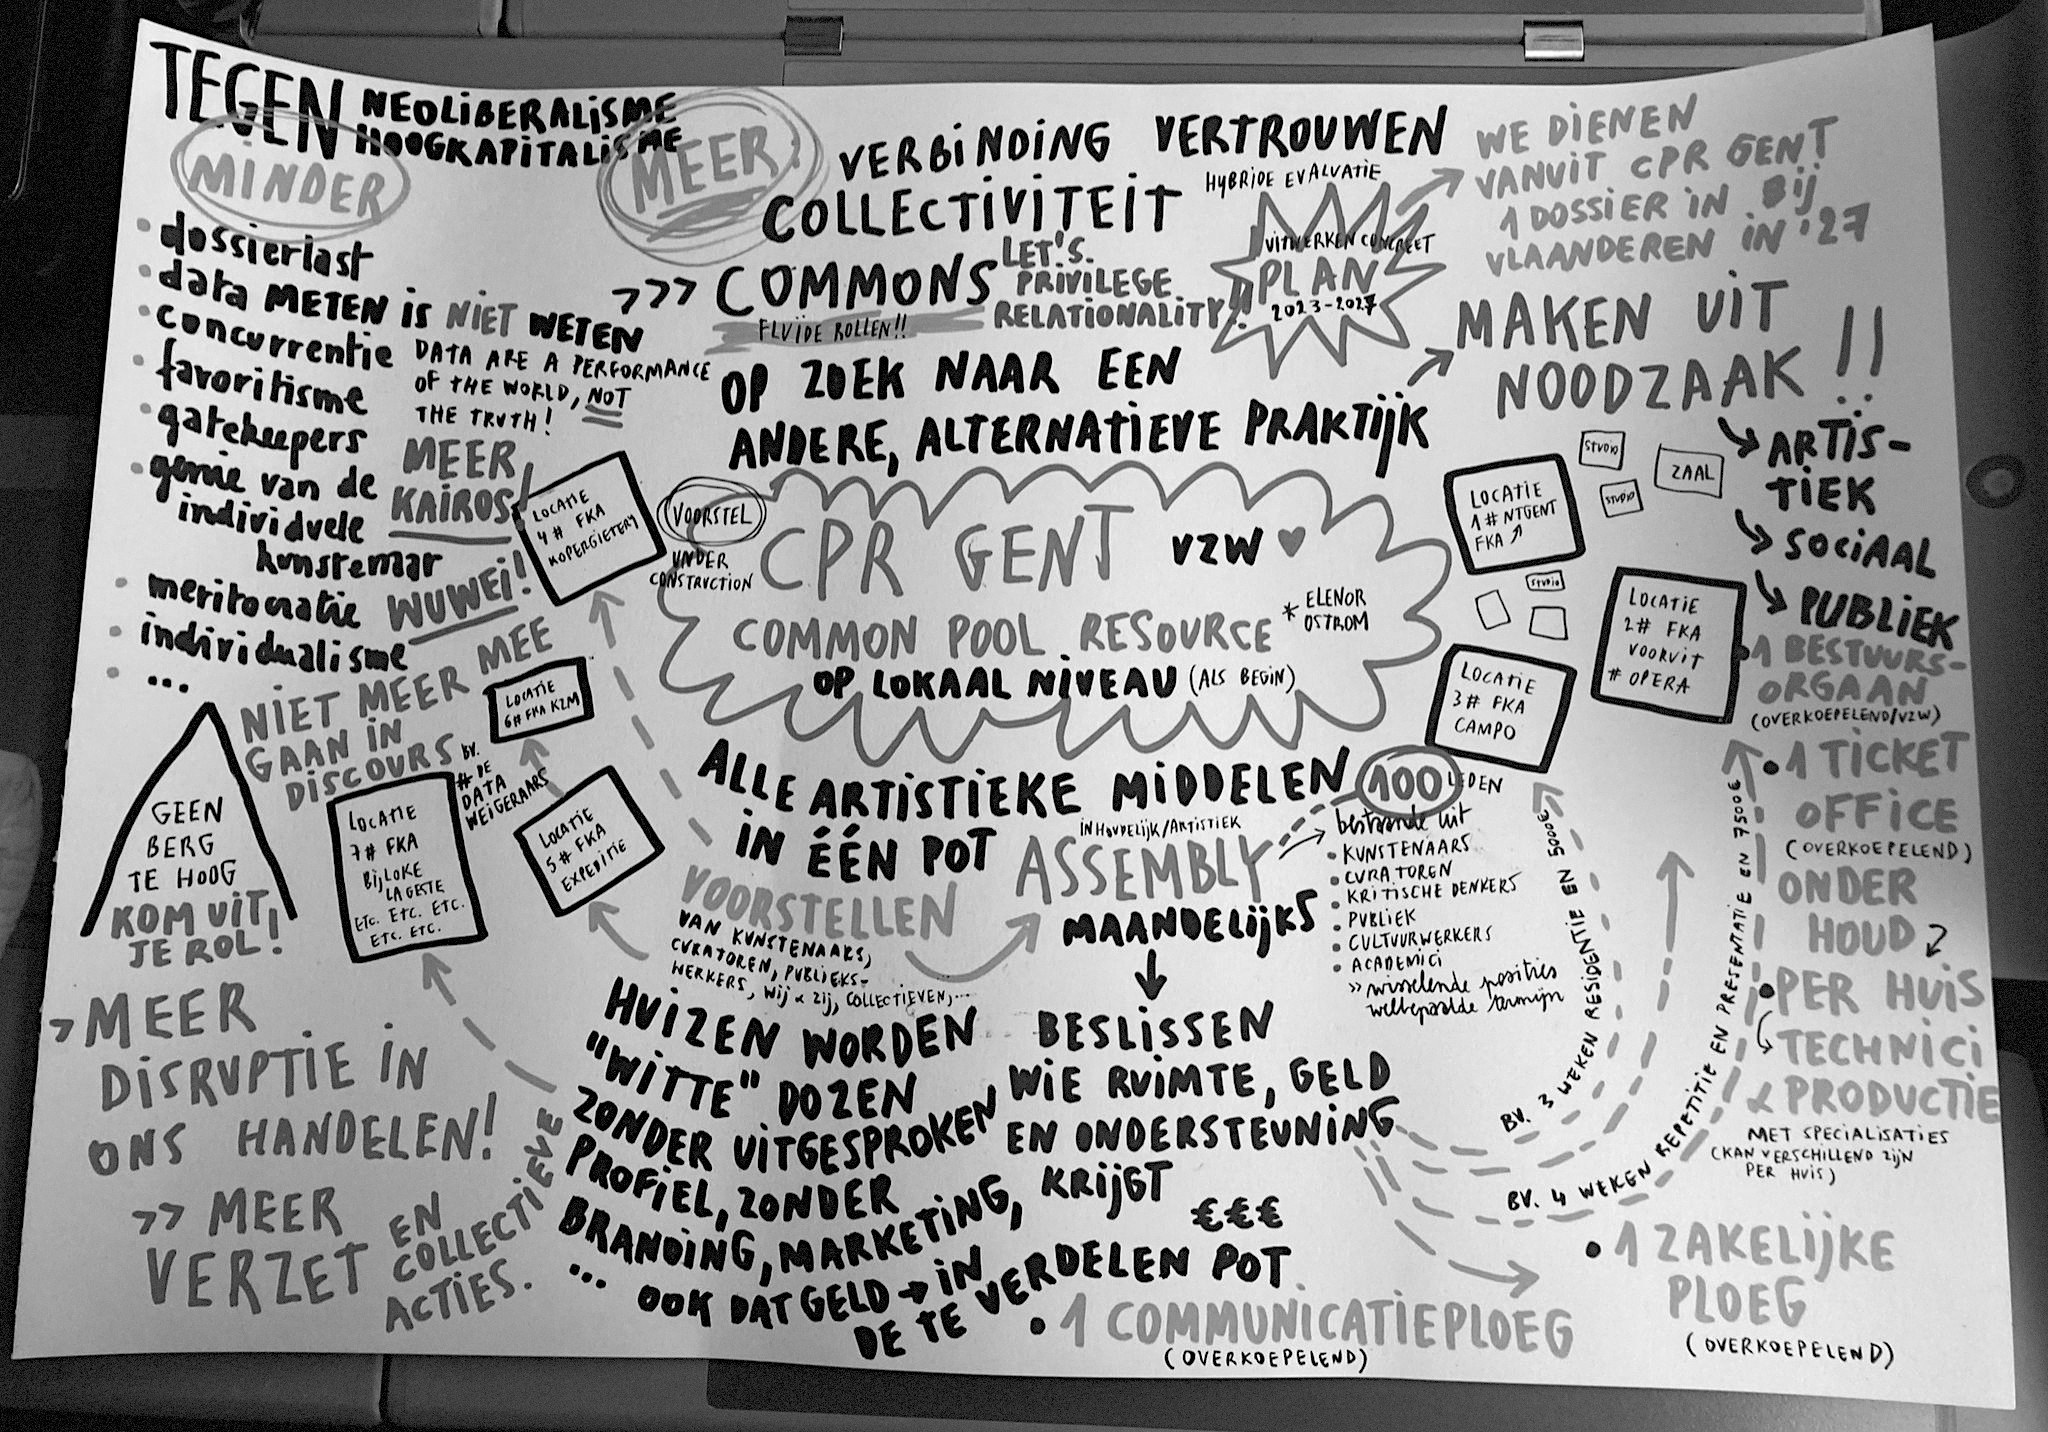 TEGEN NEOLIBERALISME
HOOGKAPITALISME
MINDER
• dossierlast
• data METEN is NIET WETEN
DATA ARE A PERFORMANCE
OF THE WORLD, NOT
THE TRUTH!
• concurrentie
• favoritisme
• gatekeepers
• genie van de
individuele
kunstenaar
• meritocratie
• individualisme
• ...
MEER
KAIROS!
WUWEI!
NIET MEER MEE
GAAN IN
DISCOURS
BV.
# DE
DATA
WEIGERAARS
GEEN
BERG
TE HOOG
KOM UIT
JE ROL!
> MEER
DISRUPTIE IN
ONS HANDELEN!
>> MEER
VERZET EN
COLLECTIEVE
ACTIES.
MEER:
VERBINDING VERTROUWEN
HYBRIDE EVALUATIE
COLLECTIVITEIT
>>> COMMONS
FLUIDE ROLLEN!!
LET'S.
PRIVILEGE
RELATIONALITY!!
UITWERKEN CONCREET
PLAN
2023-2027
WE DIENEN
VANUIT CPR GENT
1 DOSSIER IN BIJ
VLAANDEREN IN '27
OP ZOEK NAAR EEN
ANDERE, ALTERNATIEVE PRAKTIJK
MAKEN UIT
NOODZAAK!!
ARTIS-
TIEK
SOCIAAL
PUBLIEK
VOORSTEL
UNDER
CONSTRUCTION
CPR GENT VZW ♥
COMMON POOL RESOURCE
* ELENOR
OSTROM
OP LOKAAL NIVEAU (ALS BEGIN)
LOCATIE
1 # NTGENT
FKA
STUDIO
STUDIO
ZAAL
STUDIO
LOCATIE
2# FKA
VOORUIT
# OPERA
LOCATIE
3# FKA
CAMPO
LOCATIE
4# FKA
KOPERGIETERY
LOCATIE
5# FKA
EXPEDITIE
LOCATIE
6# FKA KZM
LOCATIE
7# FKA
BIJLOKE
LA GESTE
ETC. ETC. ETC.
ETC. ETC.
ALLE ARTISTIEKE MIDDELEN
IN ÉÉN POT
VOORSTELLEN
VAN KUNSTENAARS,
CURATOREN, PUBLIEKS-
WERKERS, WIJ & ZIJ, COLLECTIEVEN,...
INHOUDELIJK/ARTISTIEK
ASSEMBLY
MAANDELIJKS
100 LEDEN
bestaande uit
• KUNSTENAARS
• CURATOREN
• KRITISCHE DENKERS
• PUBLIEK
• CULTUURWERKERS
• ACADEMICI
>> wisselende posities
welbepaalde termijn
BESLISSEN
WIE RUIMTE, GELD
EN ONDERSTEUNING
KRIJGT
HUIZEN WORDEN
"WITTE" DOZEN
ZONDER UITGESPROKEN
PROFIEL, ZONDER
BRANDING, MARKETING,
...
€€€
OOK DAT GELD → IN
DE TE VERDELEN POT
BV. 3 WEKEN RESIDENTIE EN 5000€
BV. 4 WEKEN REPETITIE EN PRESENTATIE EN 7500€
• 1 BESTUURS-
ORGAAN
(OVERKOEPELEND/VZW)
• 1 TICKET
OFFICE
(OVERKOEPELEND)
ONDER
HOUD
• PER HUIS
TECHNICI
& PRODUCTIE
MET SPECIALISATIES
(KAN VERSCHILLEND ZIJN
PER HUIS)
• 1 ZAKELIJKE
PLOEG
(OVERKOEPELEND)
• 1 COMMUNICATIEPLOEG
(OVERKOEPELEND)